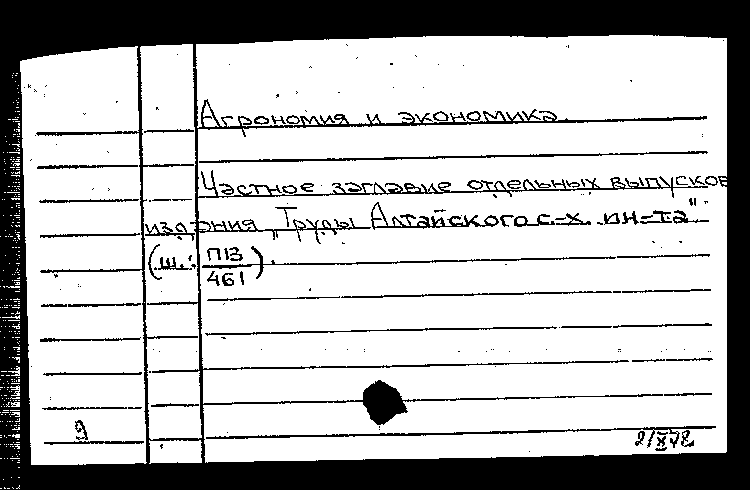 Агрономия и экономика.
Частное заглавие отдельных выпусков
издания „Труды Алтайского с.-х. ин-та"
(ш.: П13/461).
9
2/X 72